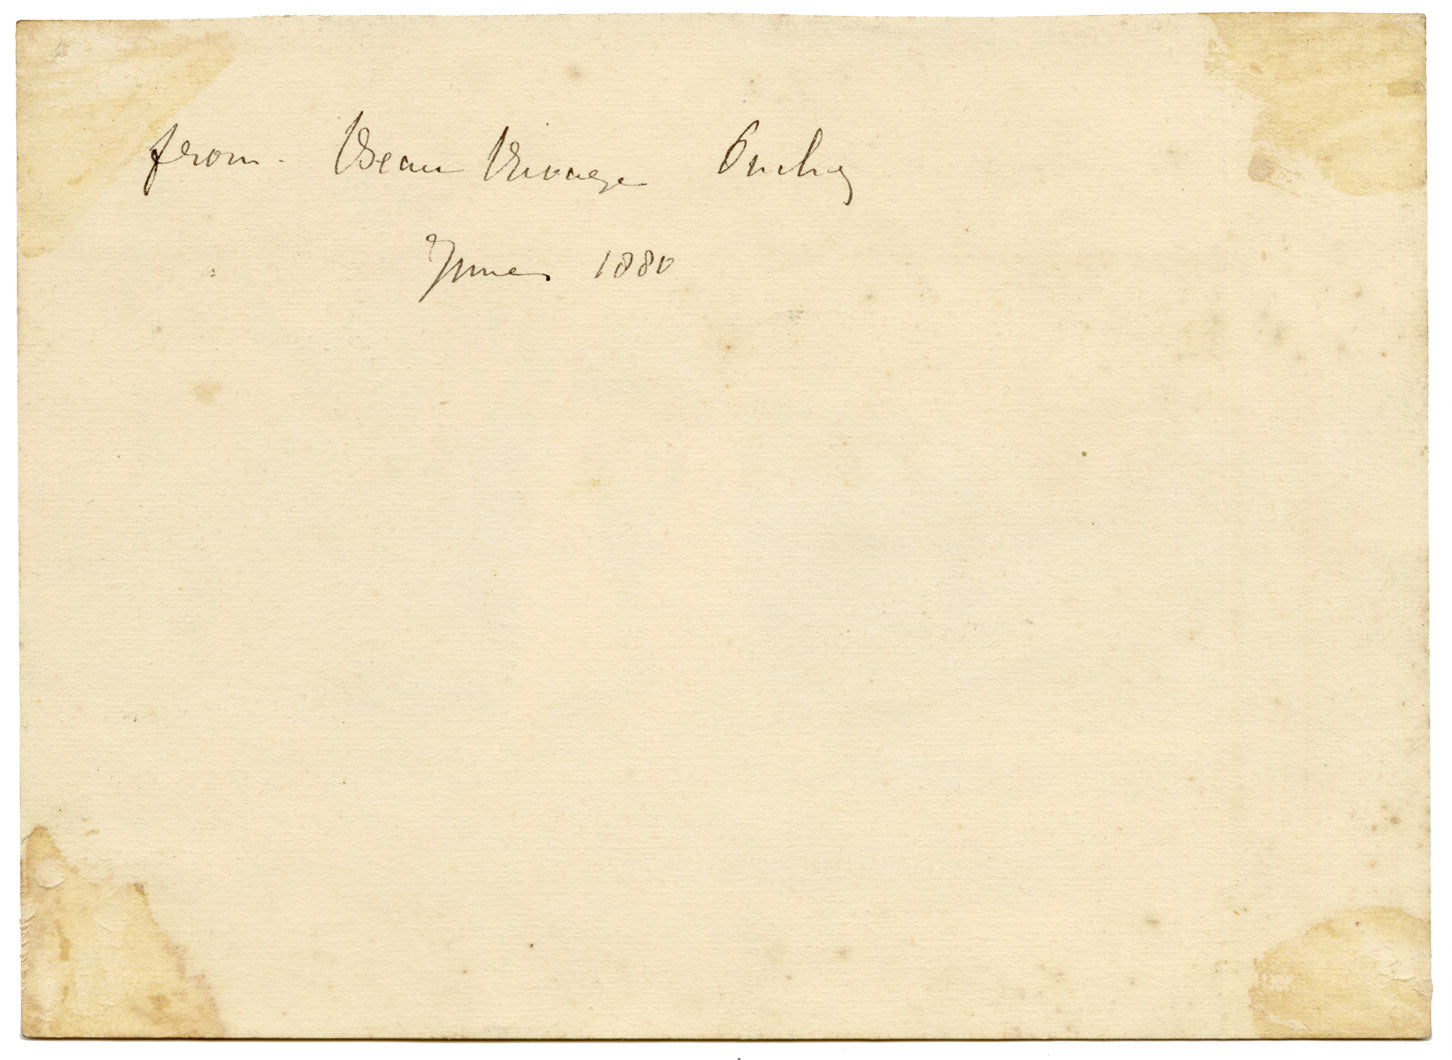 from. Beau Rivage Ouchy
June 1880